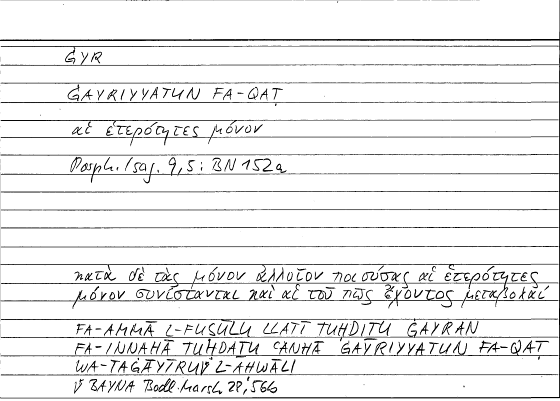 ĠYR
ĠAYRIYYATUN FA-QAṬ
αἱ ἑτερότητες μόνον
Porph. Isag. 9,5; BN 152a
κατὰ δὲ τὰς μόνον ἀλλοῖον ποιούσας αἱ ἑτερότητες
μόνον συνίστανται καὶ αἱ τοῦ πῶς ἔχοντος μεταβολαί
FA-AMMĀ L-FUṢŪLU LLATĪ TUḤDITU ĠAYRAN
FA-INNAHĀ TUḤDATU ʿANHĀ ĠAYRIYYATUN FA-QAṬ
WA-TAĠĀYYRU L-AḤWĀLI
BAYNA Bodl. Marsh. 28, 566